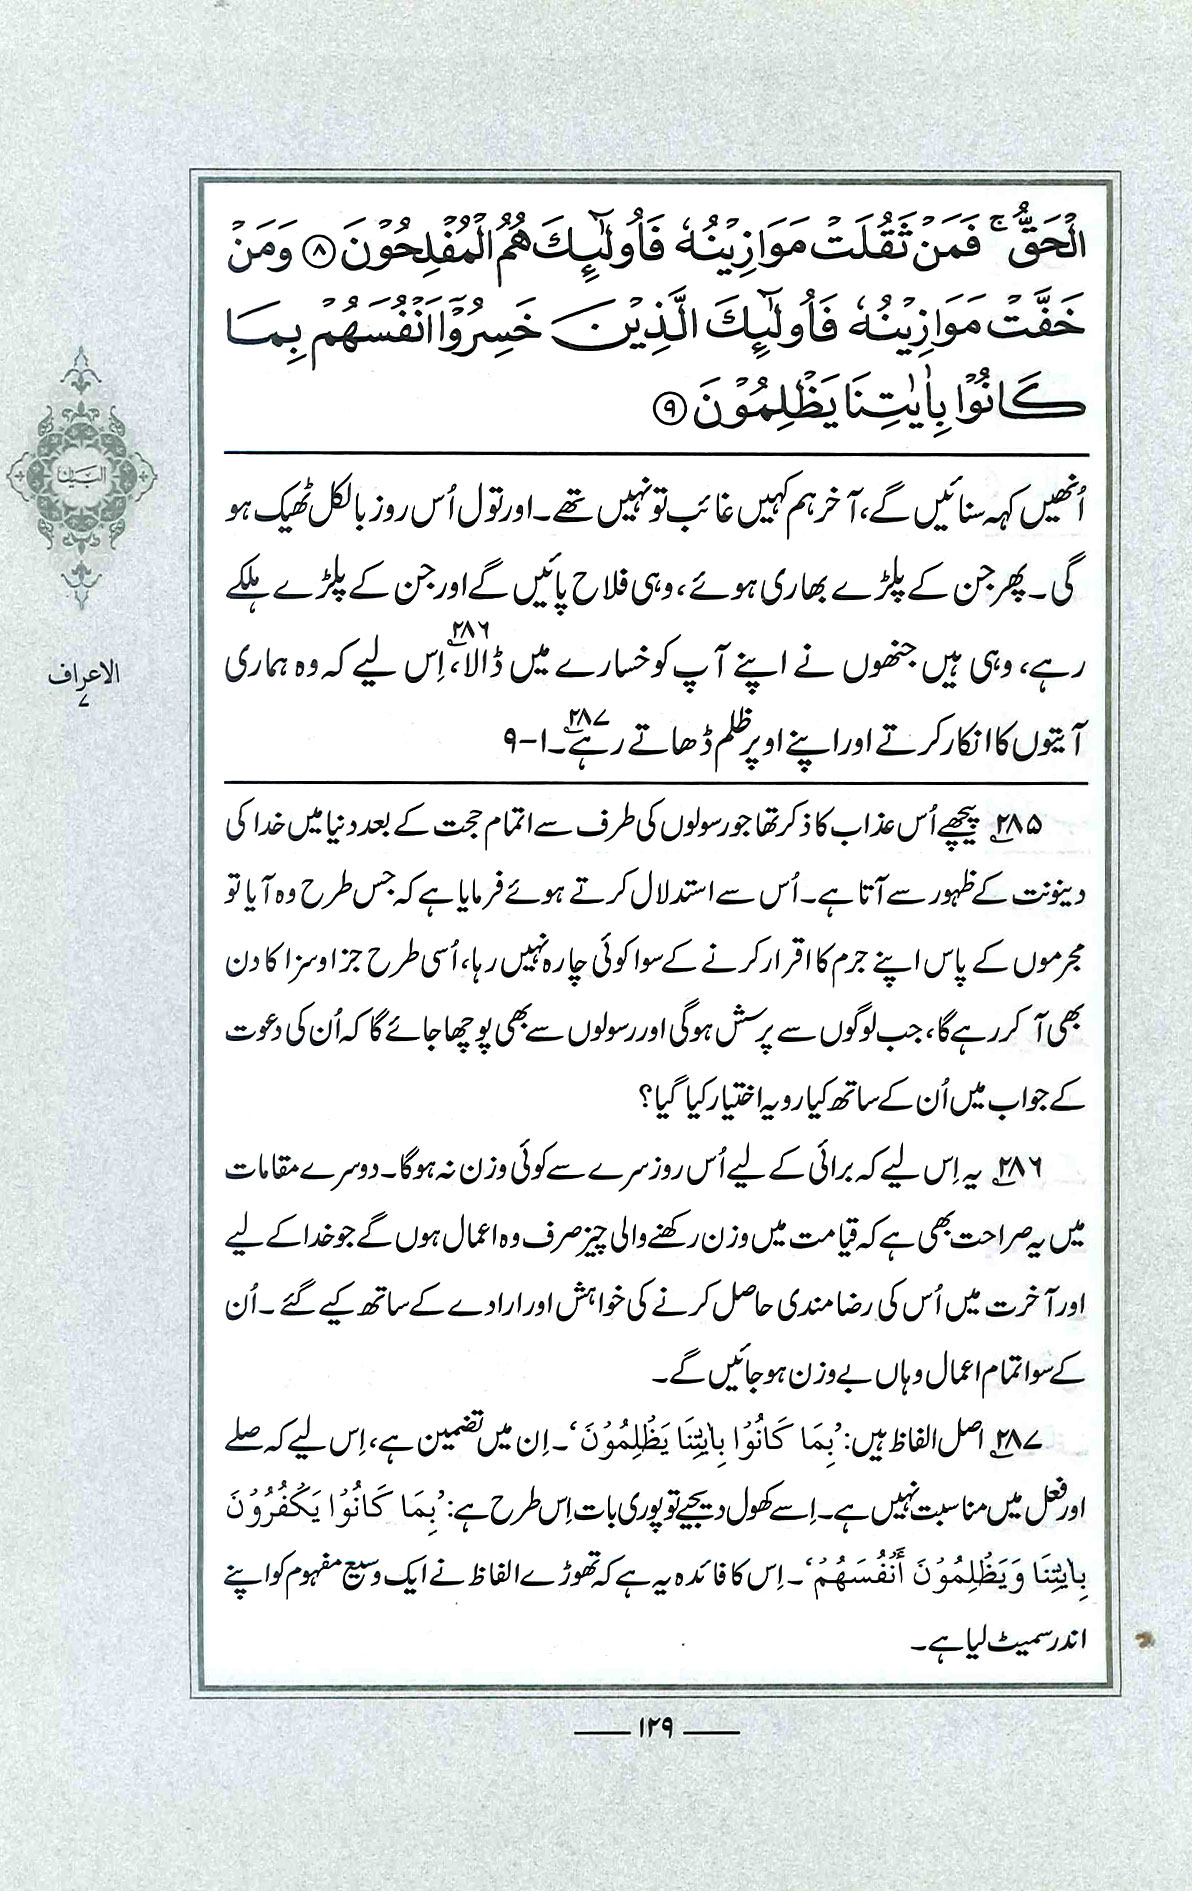 الْحَقُّ ۚ فَمَنْ ثَقُلَتْ مَوَازِيْنُهٗ فَاُولٰٓئِكَ هُمُ الْمُفْلِحُوْنَ ﴿۸﴾ وَمَنْ
خَفَّتْ مَوَازِيْنُهٗ فَاُولٰٓئِكَ الَّذِيْنَ خَسِرُوْٓا اَنْفُسَهُمْ بِمَا
كَانُوْا بِاٰيٰتِنَا يَظْلِمُوْنَ ﴿۹﴾
اُنھیں کہہ سنائیں گے، آخر ہم کہیں غائب تو نہیں تھے۔ اور تول اُس روز بالکل ٹھیک ہو
گی۔ پھر جن کے پلڑے بھاری ہوئے، وہی فلاح پائیں گے اور جن کے پلڑے ہلکے
رہے، وہی ہیں جنھوں نے اپنے آپ کو خسارے میں ڈالا،۲۸۶ اِس لیے کہ وہ ہماری
آیتوں کا انکار کرتے اور اپنے اوپر ظلم ڈھاتے رہے۲۸۷۔ ۱-۹
۲۸۵ پیچھے اُس عذاب کا ذکر تھا جو رسولوں کی طرف سے اتمام حجت کے بعد دنیا میں خدا کی
دینونت کے ظہور سے آتا ہے۔ اُس سے استدلال کرتے ہوئے فرمایا ہے کہ جس طرح وہ آیا تو
مجرموں کے پاس اپنے جرم کا اقرار کرنے کے سوا کوئی چارہ نہیں رہا، اُسی طرح جزا و سزا کا دن
بھی آ کر رہے گا، جب لوگوں سے پرسش ہوگی اور رسولوں سے بھی پوچھا جائے گا کہ اُن کی دعوت
کے جواب میں اُن کے ساتھ کیا رویہ اختیار کیا گیا؟
۲۸۶ یہ اِس لیے کہ برائی کے لیے اُس روز سرے سے کوئی وزن نہ ہوگا۔ دوسرے مقامات
میں یہ صراحت بھی ہے کہ قیامت میں وزن رکھنے والی چیز صرف وہ اعمال ہوں گے جو خدا کے لیے
اور آخرت میں اُس کی رضامندی حاصل کرنے کی خواہش اور ارادے کے ساتھ کیے گئے۔ اُن
کے سوا تمام اعمال وہاں بے وزن ہو جائیں گے۔
۲۸۷ اصل الفاظ ہیں: 'بِمَا كَانُوْا بِاٰيٰتِنَا يَظْلِمُوْنَ'۔ اِن میں تضمین ہے، اِس لیے کہ صلے
اور فعل میں مناسبت نہیں ہے۔ اِسے کھول دیجیے تو پوری بات اِس طرح ہے: 'بِمَا كَانُوْا يَكْفُرُوْنَ
بِاٰيٰتِنَا وَيَظْلِمُوْنَ أَنْفُسَهُمْ'۔ اِس کا فائدہ یہ ہے کہ تھوڑے الفاظ نے ایک وسیع مفہوم کو اپنے
اندر سمیٹ لیا ہے۔
البیان
الاعراف
۷
۱۲۹